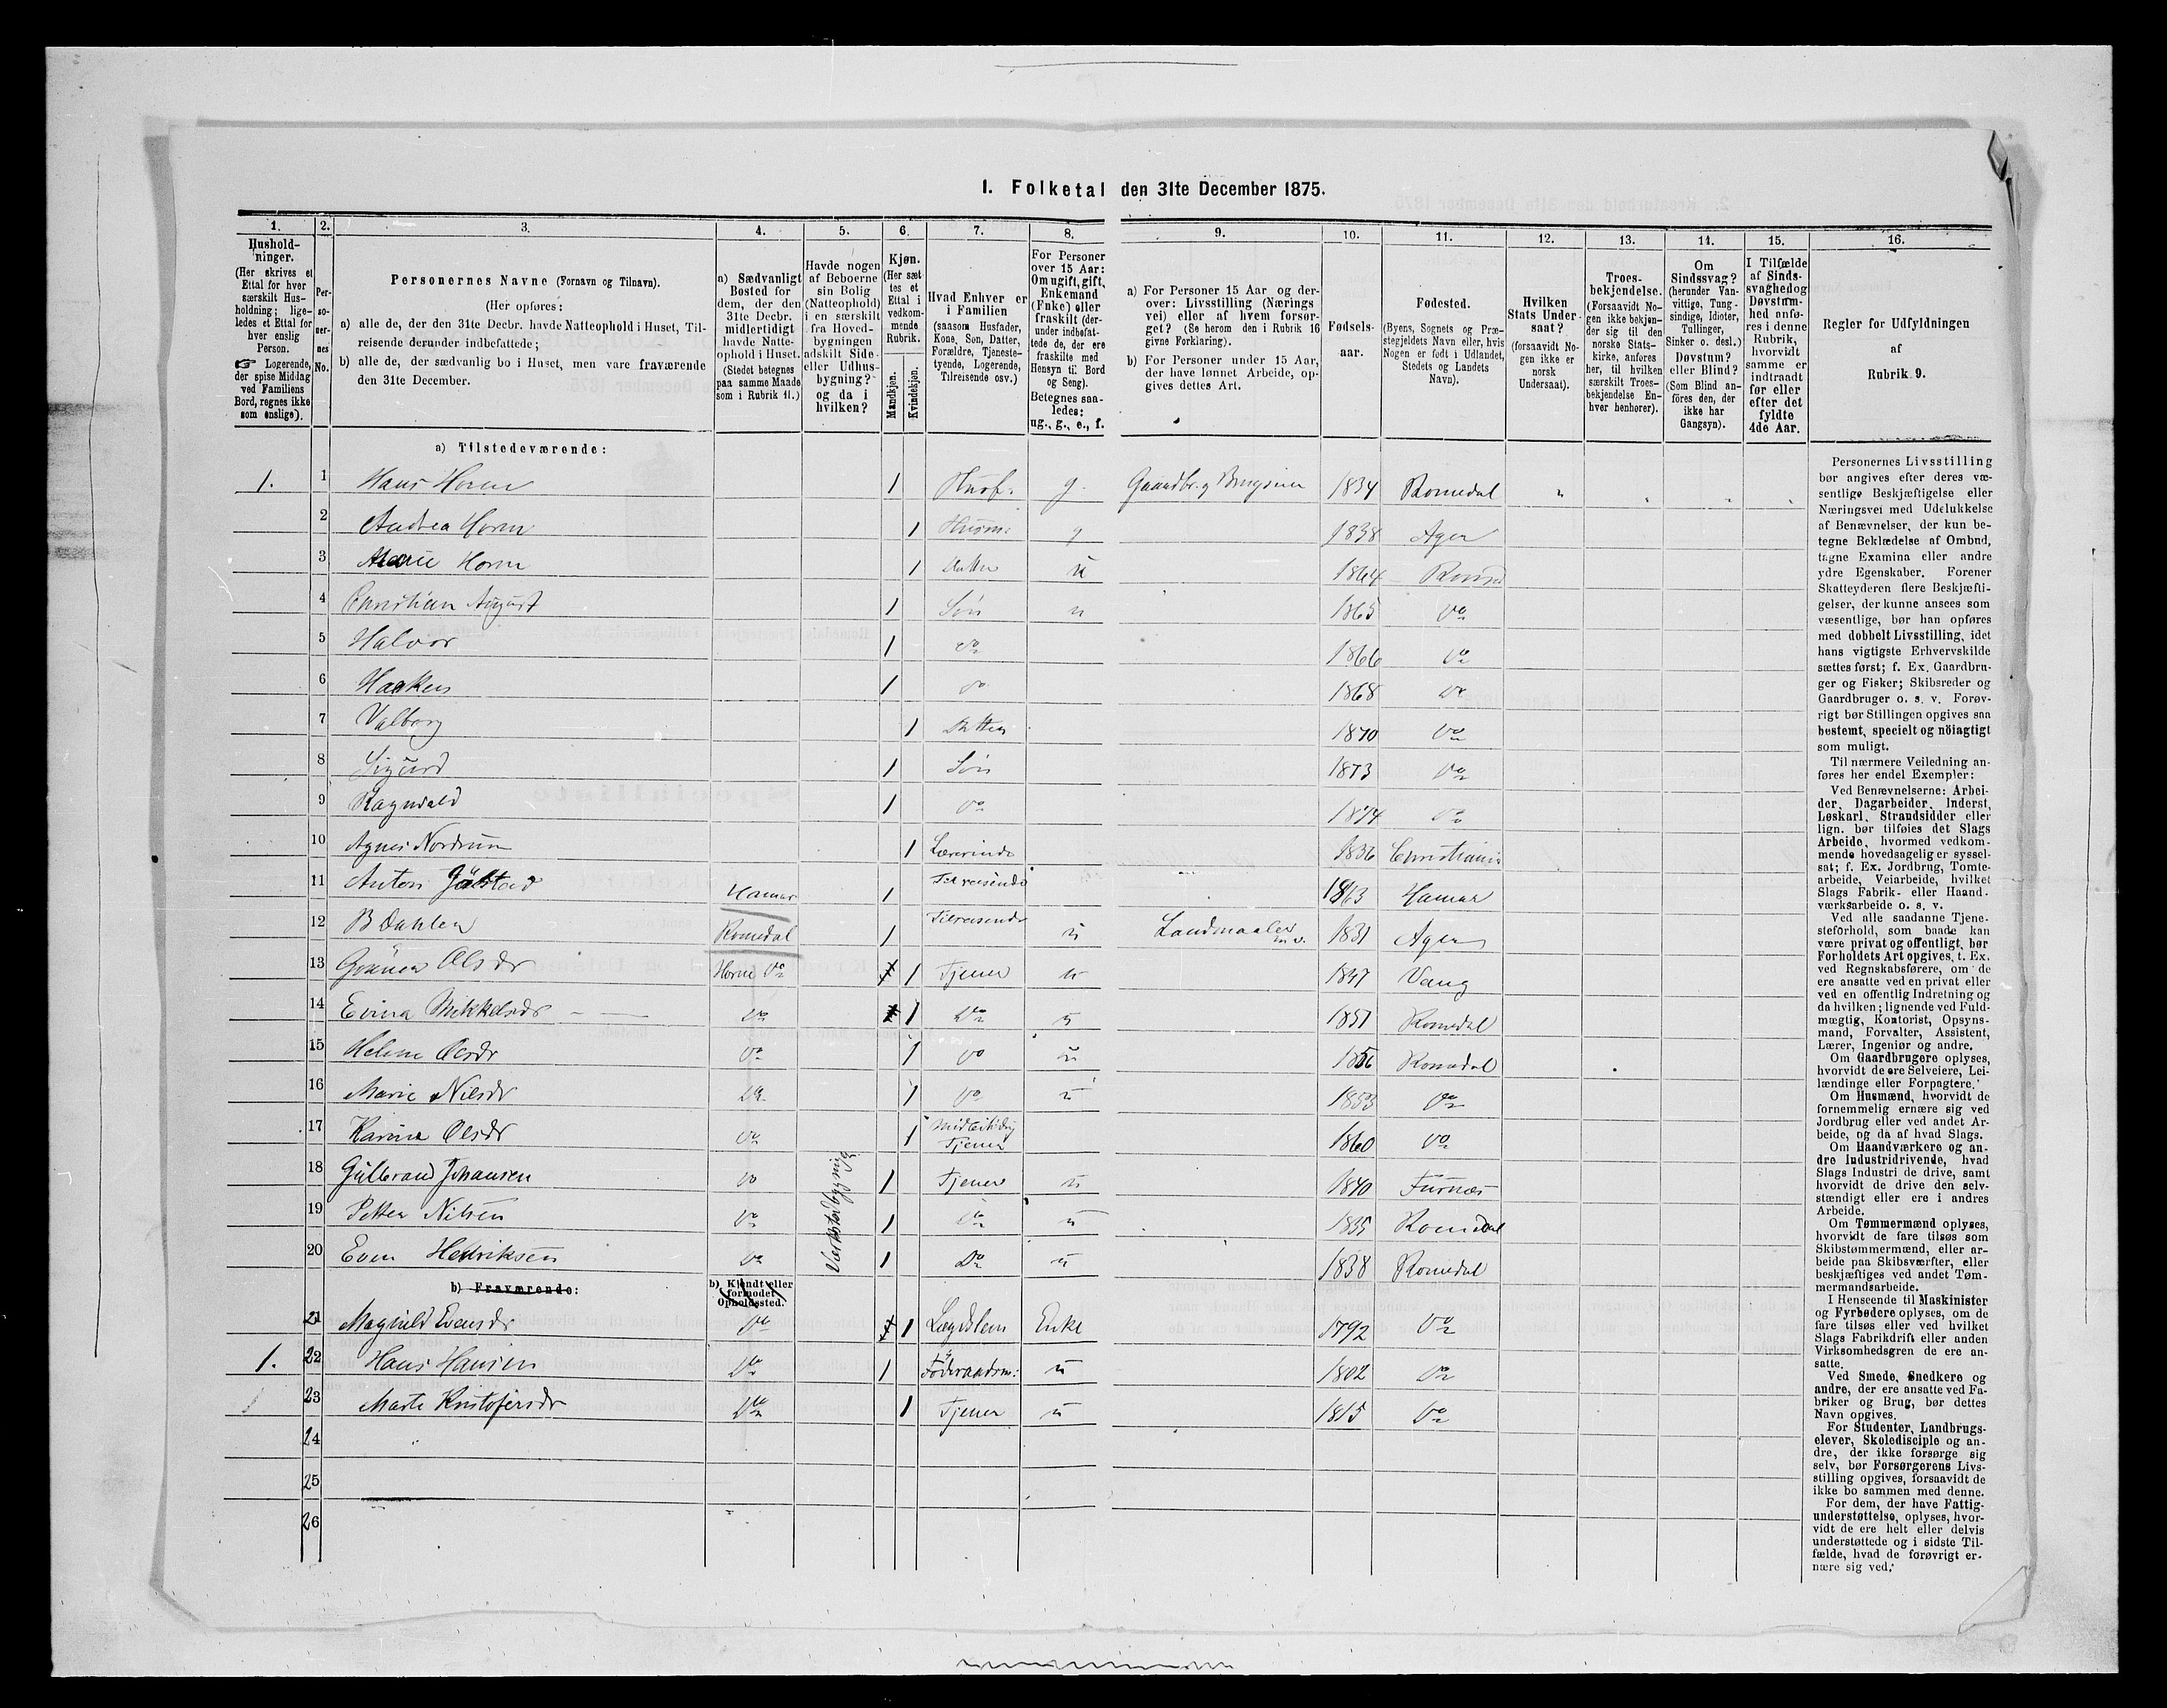 1. Folketal den 31te December 1875.
1. 2. 3. 4. 5. 6. 7. 8. 9. 10. 11. 12. 13. 14. 15. 16.
Hushold-
ninger.
(Her skrives et
Ettal for hver
særskilt Hus-
holdning; lige-
ledes et Ettal for
hver enslig
Person.
☞ Logerende,
der spise Middag
ved Familiens
Bord, regnes ikke
som enslige).
Per-
so-
ner-
nes
No.
Personernes Navne (Fornavn og Tilnavn).
(Her opføres:
a) alle de, der den 31te Decbr. havde Natteophold i Huset, Til-
reisende derunder indbefattede;
b) alle de, der sædvanlig bo i Huset, men vare fraværende
den 31te December.
a) Sædvanligt
Bosted for
dem, der den
31te Decbr.
midlertidigt
havde Natte-
ophold i Huset.
(Stedet betegnes
paa samme Maade
som i Rubrik 11.)
Havde nogen
af Beboerne
sin Bolig
(Natteophold)
i en særskilt
fra Hoved-
bygningen
adskilt Side-
eller Udhus-
bygning?
og da i
hvilken?
Kjøn.
(Her sæt-
tes et
Ettal i
vedkom-
mende
Rubrik.
Mandkjøn.
Kvindekjøn.
Hvad Enhver er
i Familien
(saasom Husfader,
Kone, Søn, Datter,
Forældre, Tjeneste-
tyende, Logerende,
Tilreisende osv.)
For Personer
over 15 Aar:
Om ugift, gift,
Enkemand
(Enke) eller
fraskilt (der-
under indbefat-
tede de, der ere
fraskilte med
Hensyn til Bord
og Seng).
Betegnes saa-
ledes:
ug., g., e., f.
a) For Personer 15 Aar og der-
over: Livsstilling (Nærings
vei) eller af hvem forsør-
get? (Se herom den i Rubrik 16
givne Forklaring).
b) For Personer under 15 Aar,
der have lønnet Arbeide, op-
gives dettes Art.
Fødsels-
aar.
Fødested.
(Byens, Sognets og Præ-
stegjeldets Navn eller, hvis
Nogen er født i Udlandet,
Stedets og Landets
Navn).
Hvilken
Stats Under
saat?
(forsaavidt No-
gen ikke er
norsk
Undersaat).
Troes-
bekjendelse.
(Forsaavidt No-
gen ikke bekjen-
der sig til den
norske Stats-
kirke, anføres
her, til hvilken
særskilt Troes-
bekjendelse En-
hver henhører).
Om
Sindssvag?
(herunder Van-
vittige, Tung-
sindige, Idioter,
Tullinger,
Sinker o. desl.)
Døvstum?
eller Blind?
(Som Blind an-
føres den, der
ikke har
Gangsyn).
I Tilfælde
af Sinds-
svaghed og
Døvstum-
hed anfø-
res i denne
Rubrik,
hvorvidt
samme er
indtraadt
før eller
efter det
fyldte
4de Aar.
Regler for Udfyldningen
af
Rubrik 9.
a) Tilstedeværende:
1. 1 Hans Horne 1 Husf. g. Gaardbr. g Brugseier 1834 Romedal
2 Andrea Horne 1 Husm: g 1838 Ager
3 Marie Horne 1 Datter u 1864 Romed
4 Christian August 1 Søn u 1865 Do
5 Halvor 1 do 1866 do
6 Haaken 1 do 1868 do
7 Valborg 1 Datter 1870 Do
8 Sigurd 1 Søn 1873 Do
9 Ragnvald 1 Do 1874 Do
10 Agnes Nordrum 1 Lærerinde 1836 Christiania
11 Anton Hamar 1 Tilreisende 1863 Hamar
12 B Dahlen Romedal 1 Tilreisende u Landmaaler 1831 Ager
13 Olsdr Horne Do 1 Tjener u 1847 Vang
14 Mikkelsdr Do 1 Do u 1851 Romedal
15 Helene Olsdr Do 1 Do u 1856 Romedal
16 Marie Nilsdr Do 1 Do u 1853 Do
17 Karine Olsdr Do 1 Midlertidig Tjener 1860 Do
18 Gulbrand Johansen Do Verkstedbygning 1 Tjener u 1840 Furnæs
19 Petter Nilsen Do 1 Do u 1835 Romedal
20 Even Hedriksen Do 1 Do u 1838 Romedal
b) Fraværende:
b) Kjendt eller
formodet
Opholdssted.
21 Magnild Evensdr Do 1 Lægdslem Enke 1792 Do
1. 22 Hans Hansen Do 1 Føderaadsm: u 1802 Do
23 Marte Kristofersdr Do 1 Tjener u 1815 Do
24
25
26
Personernes Livsstilling
bør angives efter deres væ-
sentlige Beskjæftigelse eller
Næringsvei med Udelukkelse
af Benævnelser, der kun be-
tegne Beklædelse af Ombud,
tagne Examina eller andre
ydre Egenskaber. Forener
Skatteyderen flere Beskjæfti-
gelser, der kunne ansees som
væsentlige, bør han opføres
med dobbelt Livsstilling, idet
hans vigtigste Erhvervskilde
sættes først; f. Ex. Gaardbru-
ger og Fisker; Skibsreder og
Gaardbruger o. s. v. Forøv-
rigt bør Stillingen opgives saa
bestemt, specielt og nøiagtigt
som muligt.
Til nærmere Veiledning an-
føres her endel Exempler:
Ved Benævnelserne: Arbei-
der, Dagarbeider, Inderst,
Løskarl, Strandsidder eller
lign. bør tilføies det Slags
Arbeide, hvormed vedkom-
mende hovedsagelig er syssel-
sat; f. Ex. Jordbrug, Tomte-
arbeide, Veiarbeide, hvilket
Slags Fabrik- eller Haand-
værksarbeide o. s. v.
Ved alle saadanne Tjene-
steforhold, som baade kan
være privat og offentligt, bør
Forholdets Art opgives, t. Ex.
ved Regnskabsførere, om de
ere ansatte ved en privat eller
ved en offentlig Indretning og
da hvilken; lignende ved Fuld-
mægtig, Kontorist, Opsyns-
mand, Forvalter, Assistent,
Lærer, Ingeniør og andre.
Om Gaardbrugere oplyses,
hvorvidt de ere Selveiere, Lei-
lændinge eller Forpagtere.
Om Husmænd, hvorvidt de
fornemmelig ernære sig ved
Jordbrug eller ved andet Ar-
beide, og da af hvad Slags.
Om Haandværkere og an-
dre Industridrivende, hvad
Slags Industri de drive, samt
hvorvidt de drive den selv-
stændigt eller ere i andres
Arbeide.
Om Tømmermænd oplyses,
hvorvidt de fare tilsøs som
Skibstømmermænd, eller ar-
beide paa Skibsværfter, eller
beskjæftiges ved andet Tøm-
mermandsarbeide.
I Henseende til Maskinister
og Fyrbødere oplyses, om de
fare tilsøs eller ved hvilket
Slags Fabrikdrift eller anden
Virksomhedsgren de ere an-
satte.
Ved Smede, Snedkere og
andre, der ere ansatte ved Fa-
briker og Brug, bør dettes
Navn opgives.
For Studenter, Landbrugs-
elever, Skoledisciple og an-
dre, der ikke forsørge sig
selv, bør Forsørgerens Livs-
stilling opgives, forsaavidt de
ikke bo sammen med denne.
For dem, der have Fattig-
understøttelse, oplyses, hvor-
vidt de ere helt eller delvis
understøttede og i sidste Til-
fælde, hvad de forøvrigt er-
nære sig ved.